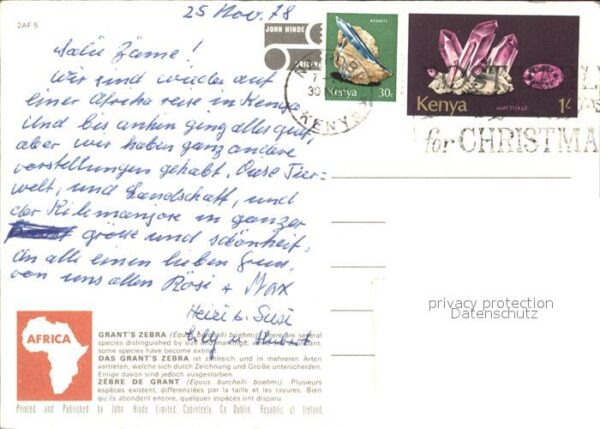 25 Nov. 78
2AF5
JOHN HINDE
ORIGINAL
KYANITE
Kenya 30c
AMETHYST
Kenya 1/-
NAIROBI
KENYA
POST EARLY
for CHRISTMA
Salü Zäme!
Wir sind wieder auf
einer Afrika reise in Kenya
und bis anhin ging alles gut,
aber wir haben ganz andere
vorstellungen gehabt. Diese Tier-
welt, und Landschaft, und
der Kilimanjaro in ganzer
grösse und schönheit.
An alle einen lieben Gruss,
von uns allen Rösi + Max
Heiri u. Susi
Willy u. Hubert
privacy protection
Datenschutz
AFRICA
GRANT'S ZEBRA (Equus burchelli boehmi). There are several
species distinguished by size and markings,
some species have become extinct.
DAS GRANT'S ZEBRA ist zahlreich und in mehreren Arten
vertreten, welche sich durch Zeichnung und Größe unterscheiden.
Einige davon sind jedoch ausgestorben.
ZÈBRE DE GRANT (Equus burchelli boehmi). Plusieurs
espèces existent, différenciées par la taille et les rayures. Bien
qu'ils abondent encore, quelques espèces ont disparu.
Printed and Published by John Hinde Limited, Cabinteely, Co Dublin, Republic of Ireland.